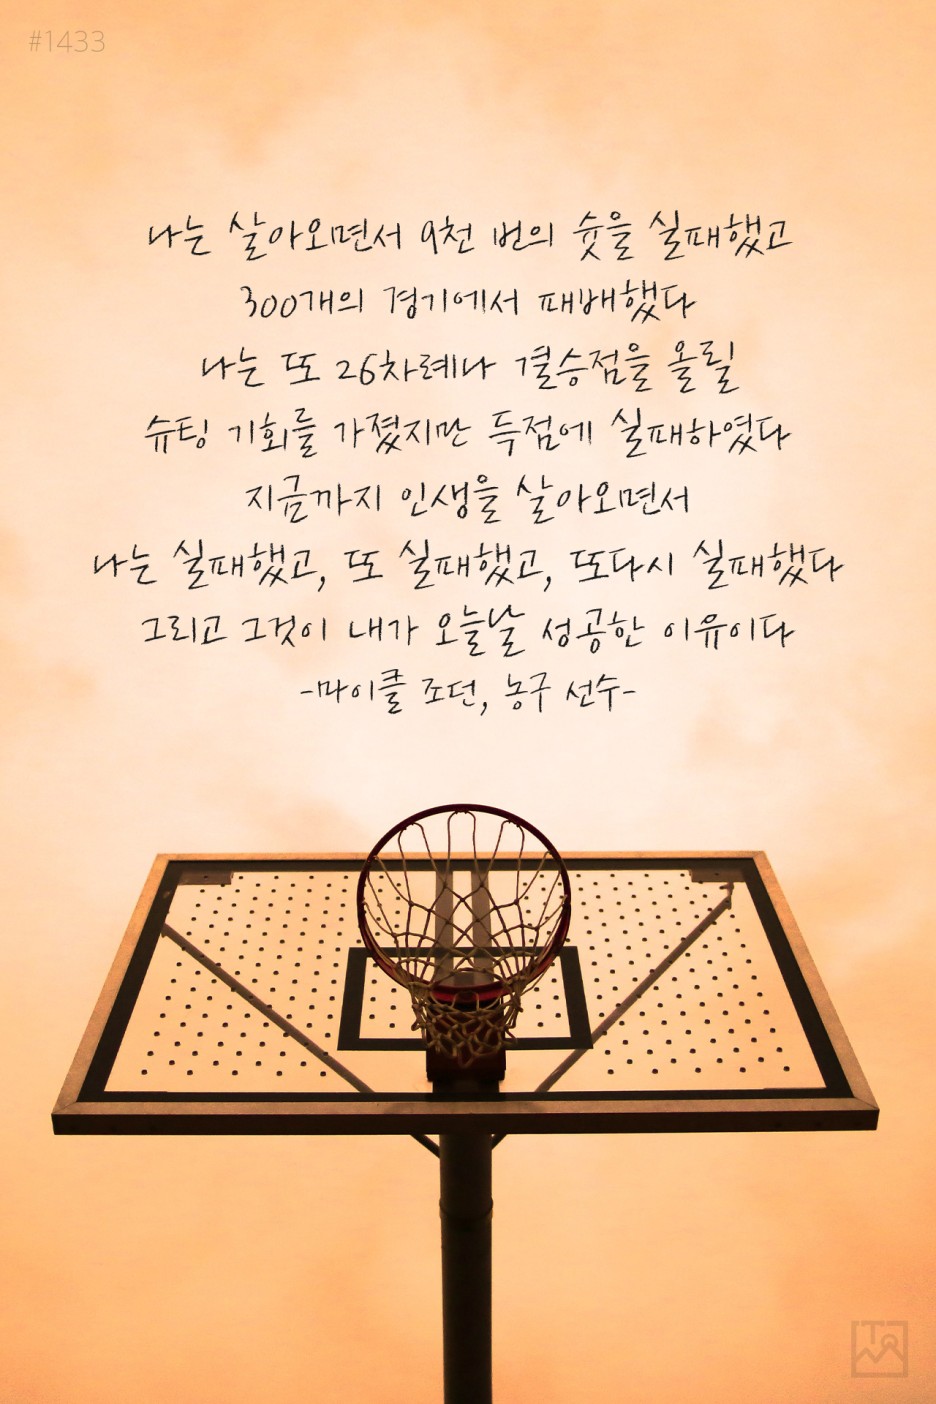 #1433
나는 살아오면서 9천 번의 슛을 실패했고
300개의 경기에서 패배했다
나는 또 26차례나 결승점을 올릴
슈팅 기회를 가졌지만 득점에 실패하였다
지금까지 인생을 살아오면서
나는 실패했고, 또 실패했고, 또다시 실패했다
그리고 그것이 내가 오늘날 성공한 이유이다
-마이클 조던, 농구 선수-